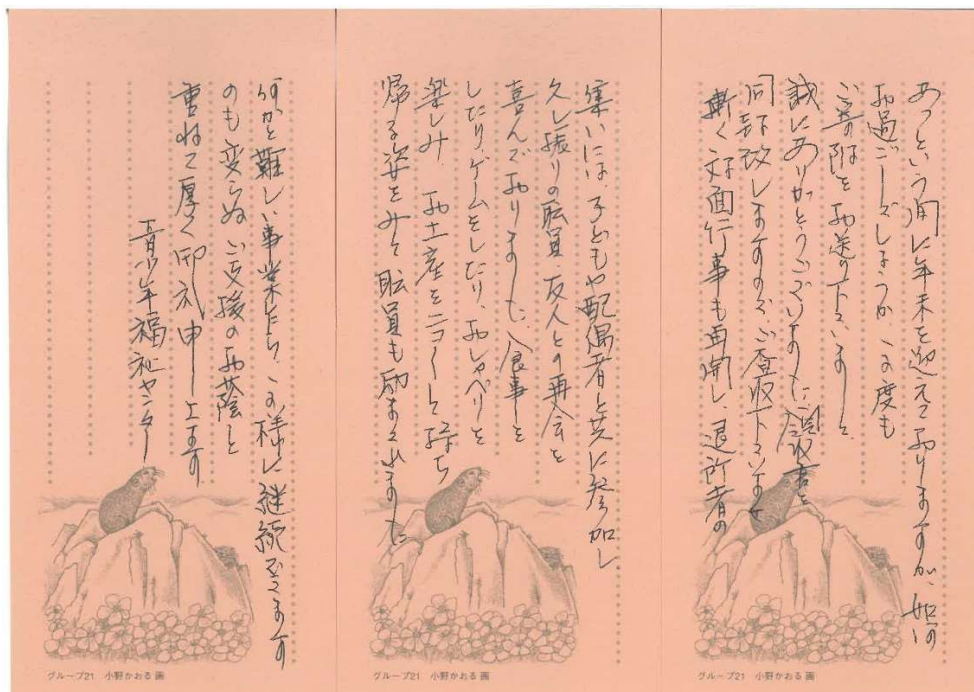 あっという間に年末を迎えて居りますが、如何
お過ごしでしょうか、この度も
ご寄附をお送り下さいまして
誠にありがとうございました。領収書を
同封致しますので、ご査収下さいませ
漸く対面行事も再開し、退所者の
集いには、子どもや配偶者と共に参加し
久し振りの職員、友人との再会を
喜んでおりました。食事を
したりゲームをしたり、おしゃべりを
楽しみ、お土産をニコニコして持ち
帰る姿をみて職員も励まされました
何かと難しい事業乍ら、この様に継続出来ます
のも変らぬご支援のお蔭と
重ねて厚く御礼申し上げます
青少年福祉センター
グループ21 小野かおる 画
グループ21 小野かおる 画
グループ21 小野かおる 画